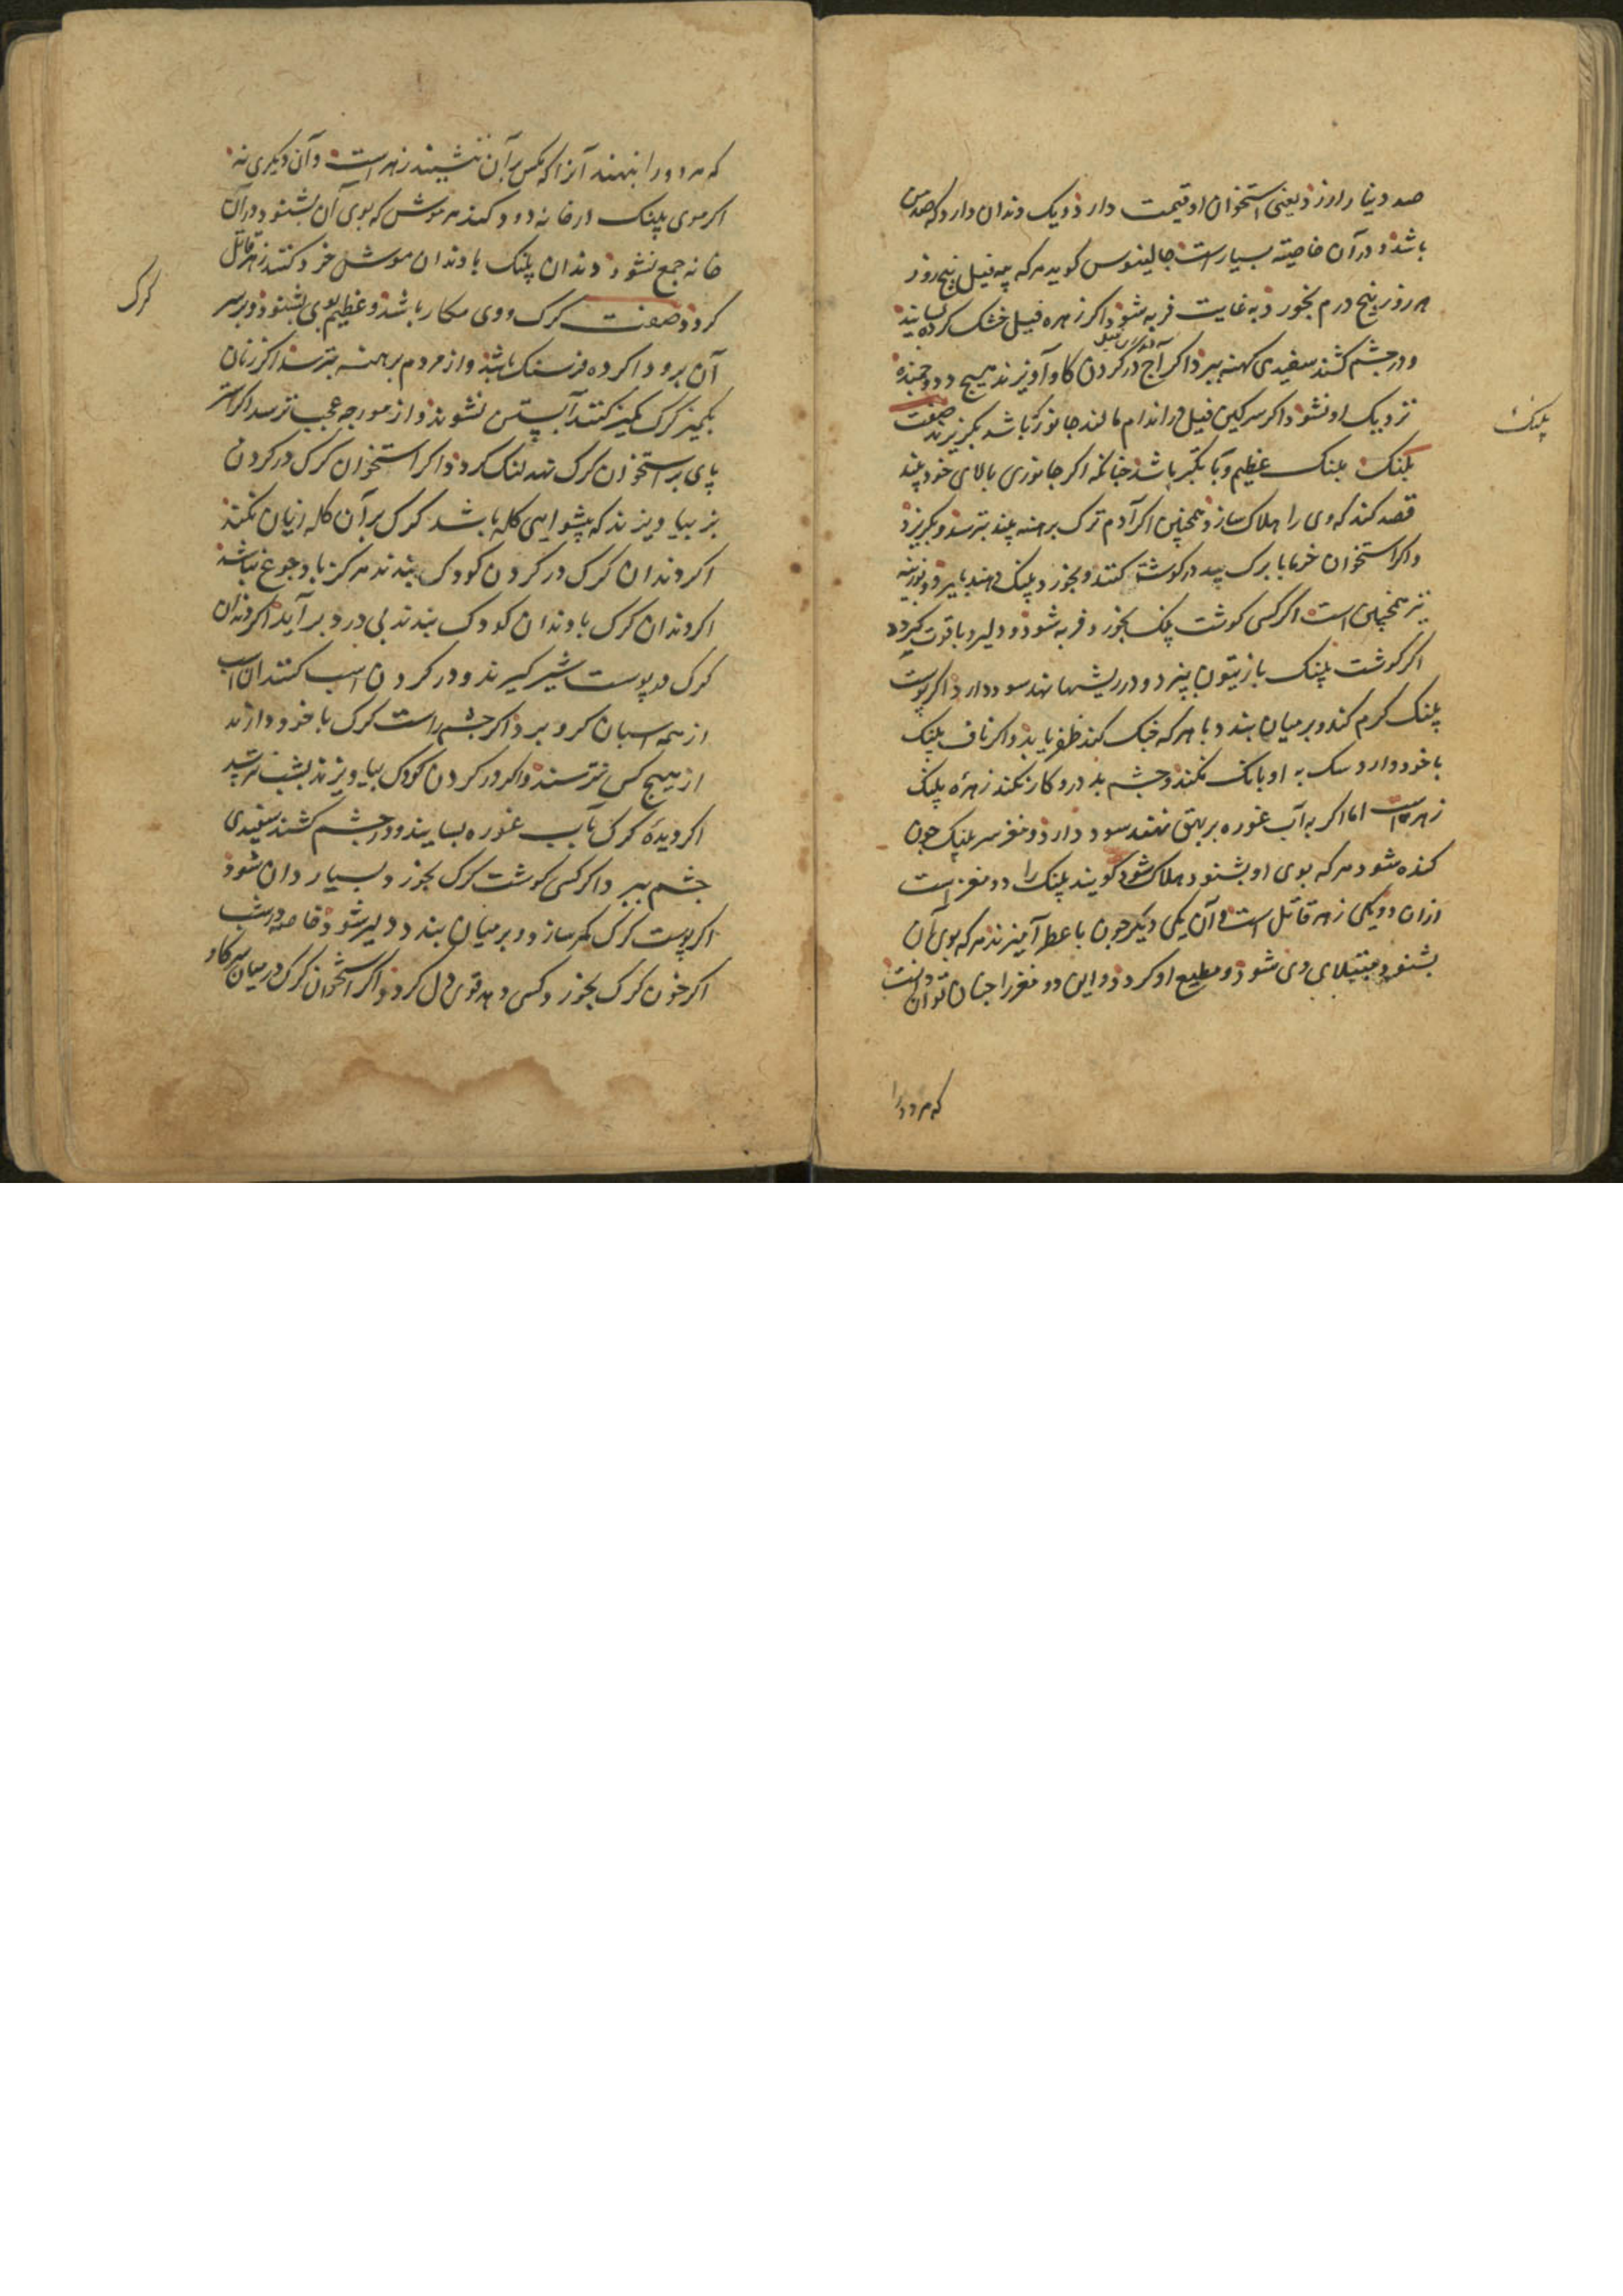 صد دینار ارزد یعنی استخوان او قیمت دارد و یک دندان دارد که صد من
باشد و در آن خاصیته بسیار است جالینوس کوید هر که پیه فیل پنج روز
هر روز پنج درم بخورد به غایت فربه شود و اکر زهره فیل خشک کرده بسایند
و در چشم کشند سفیدی کهنه ببرد اکر آج در کردن کاو آویزند هیچ دد و جمنده
نزدیک او نشود و اکر سرکین فیل در اندام مالند جانور نباشد بکریزند صفت
پلنک
بلنک بلنک عظیم و با تکبر باشد جنانکه اکر جانوری بالای خود بیند
قصد کند که وی را هلاک سازد همچنین اکر آدم ترک برهنه بیند بترسد و بکریزد
و اکر استخوان خرما با برک بید در کوشت کنند و بخورد پلنک دهند بمیرد و بوزینه
نیز همچنین است اکر کسی کوشت پلنک بخورد فربه شود و دلیر و با قوت کردد
اکر کوشت پلنک با زیتون بپزد و در ریشها نهد سود دارد اکر پوست
پلنک کرم کند و بر میان بندد با هر که جنک کند ظفر یابد و اکر ناف پلنک
با خود دارد سک به او بانک نکند و جشم بد در و کار نکند زهرهٔ پلنک
زهر است اما اکر به آب غوره بر بهق نهند سود دارد و مغز سر بلنک جون
کنده شود هر که بوی او بشنود هلاک شود کویند پلنک را دو مغز است
ازان دو یکی زهر قاتل است و آن یکی دیکر جون با عطر آمیزند هر که بوی آن
بشنود مبتلای وی شود و مطیع او کردد و این دو مغز را جنان توان دانست
که هر دو را
که هر دو را بنهند آنرا که مکس بر آن ننشیند زهر است و آن دیکری نه
اکر موی پلنک در خانه دود کنند هر موش که بوی آن بشنود در آن
خانه جمع نشود دندان پلنک با دندان موش خرد کنند زهر قاتل
کرک
کردد صفت کرک و وی مکار باشد و عظیم بوی بشنود و بر سر
آن برود اکر ده فرسنک باشد و از مردم برهنه بترسد اکر زنان
بکمیز کرک کمیز کنند آبستن نشوند و از مورجه عجب ترسد اکر استر
پای بر استخوان کرک نهد لنک کردد و اکر استخوان کرک در کردن
بز بیاویزند که پیشوا یی کله باشد کرک بر آن کله زیان نکند
اکر دندان کرک در کردن کودک بندند هرکز باد جوع نباشد
اکر دندان کرک با دندان کودک بندند بی درد برآید اکر دندان
کرک در پوست شیر کیرند و در کردن اسب کنند آن اسب
از همه اسبان کرو برد اکر جشم راست کرک با خود دارند
از هیچ کس نترسند و اکر در کردن کودک بیاویزند بشب نترسد
اکر دیدهٔ کرک بآب غوره بسایند و در جشم کشند سفیدی
جشم ببرد و اکر کسی کوشت کرک بخورد بسیار دان شود
اکر پوست کرک کمر سازد و بر میان بندد دلیر شود خاصه در شب
اکر خون کرک بخورد کسی دهد قوی دل کردد و اکر استخوان کرک در میان سرکاو